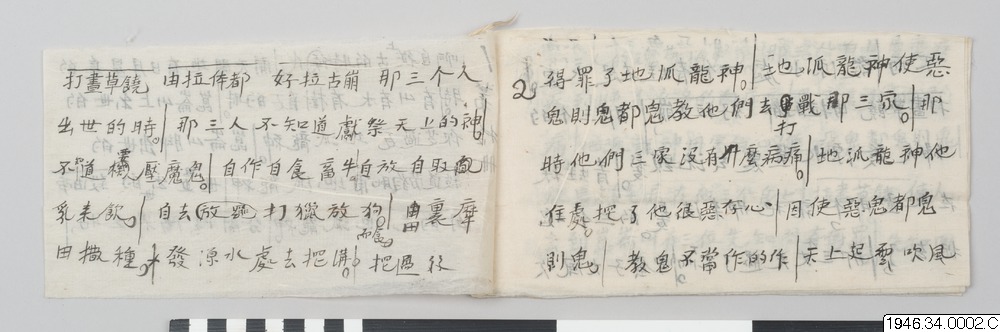 打畫草饒 由拉侔都 好拉古崩 那三个人
出世的時。那三人不知道獻祭天上的神。
不知道 壓魔鬼。自作自食畜牛自放自取
乳来飲。自去放 打獵放狗。由裏摩
田撒種。水發源水處去把佛。把 後
2 得罪了地派龍神。地派龍神使惡
鬼則鬼都鬼教他們去打戰那三家。那
時他們三家沒有什麼病痛。地派龍神他
住處把了他很惡存心 因使惡鬼都鬼
則鬼。教鬼不當作的作 天上起雲吹風
1946.34.0002.C